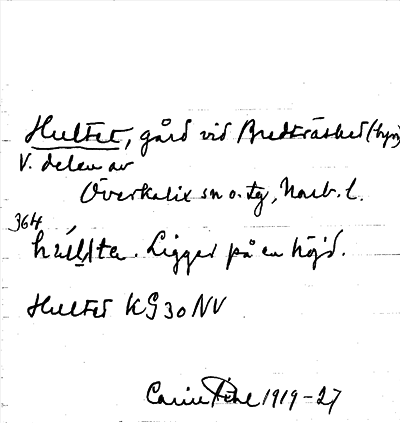 Hultet, gård vid Bredträsket (byn)
V. delen av
Överkalix sn o. tg, Norrb. l.
364
Ligger på en höjd.
Hultet KG 30 NV
Carin Pihl 1919-27